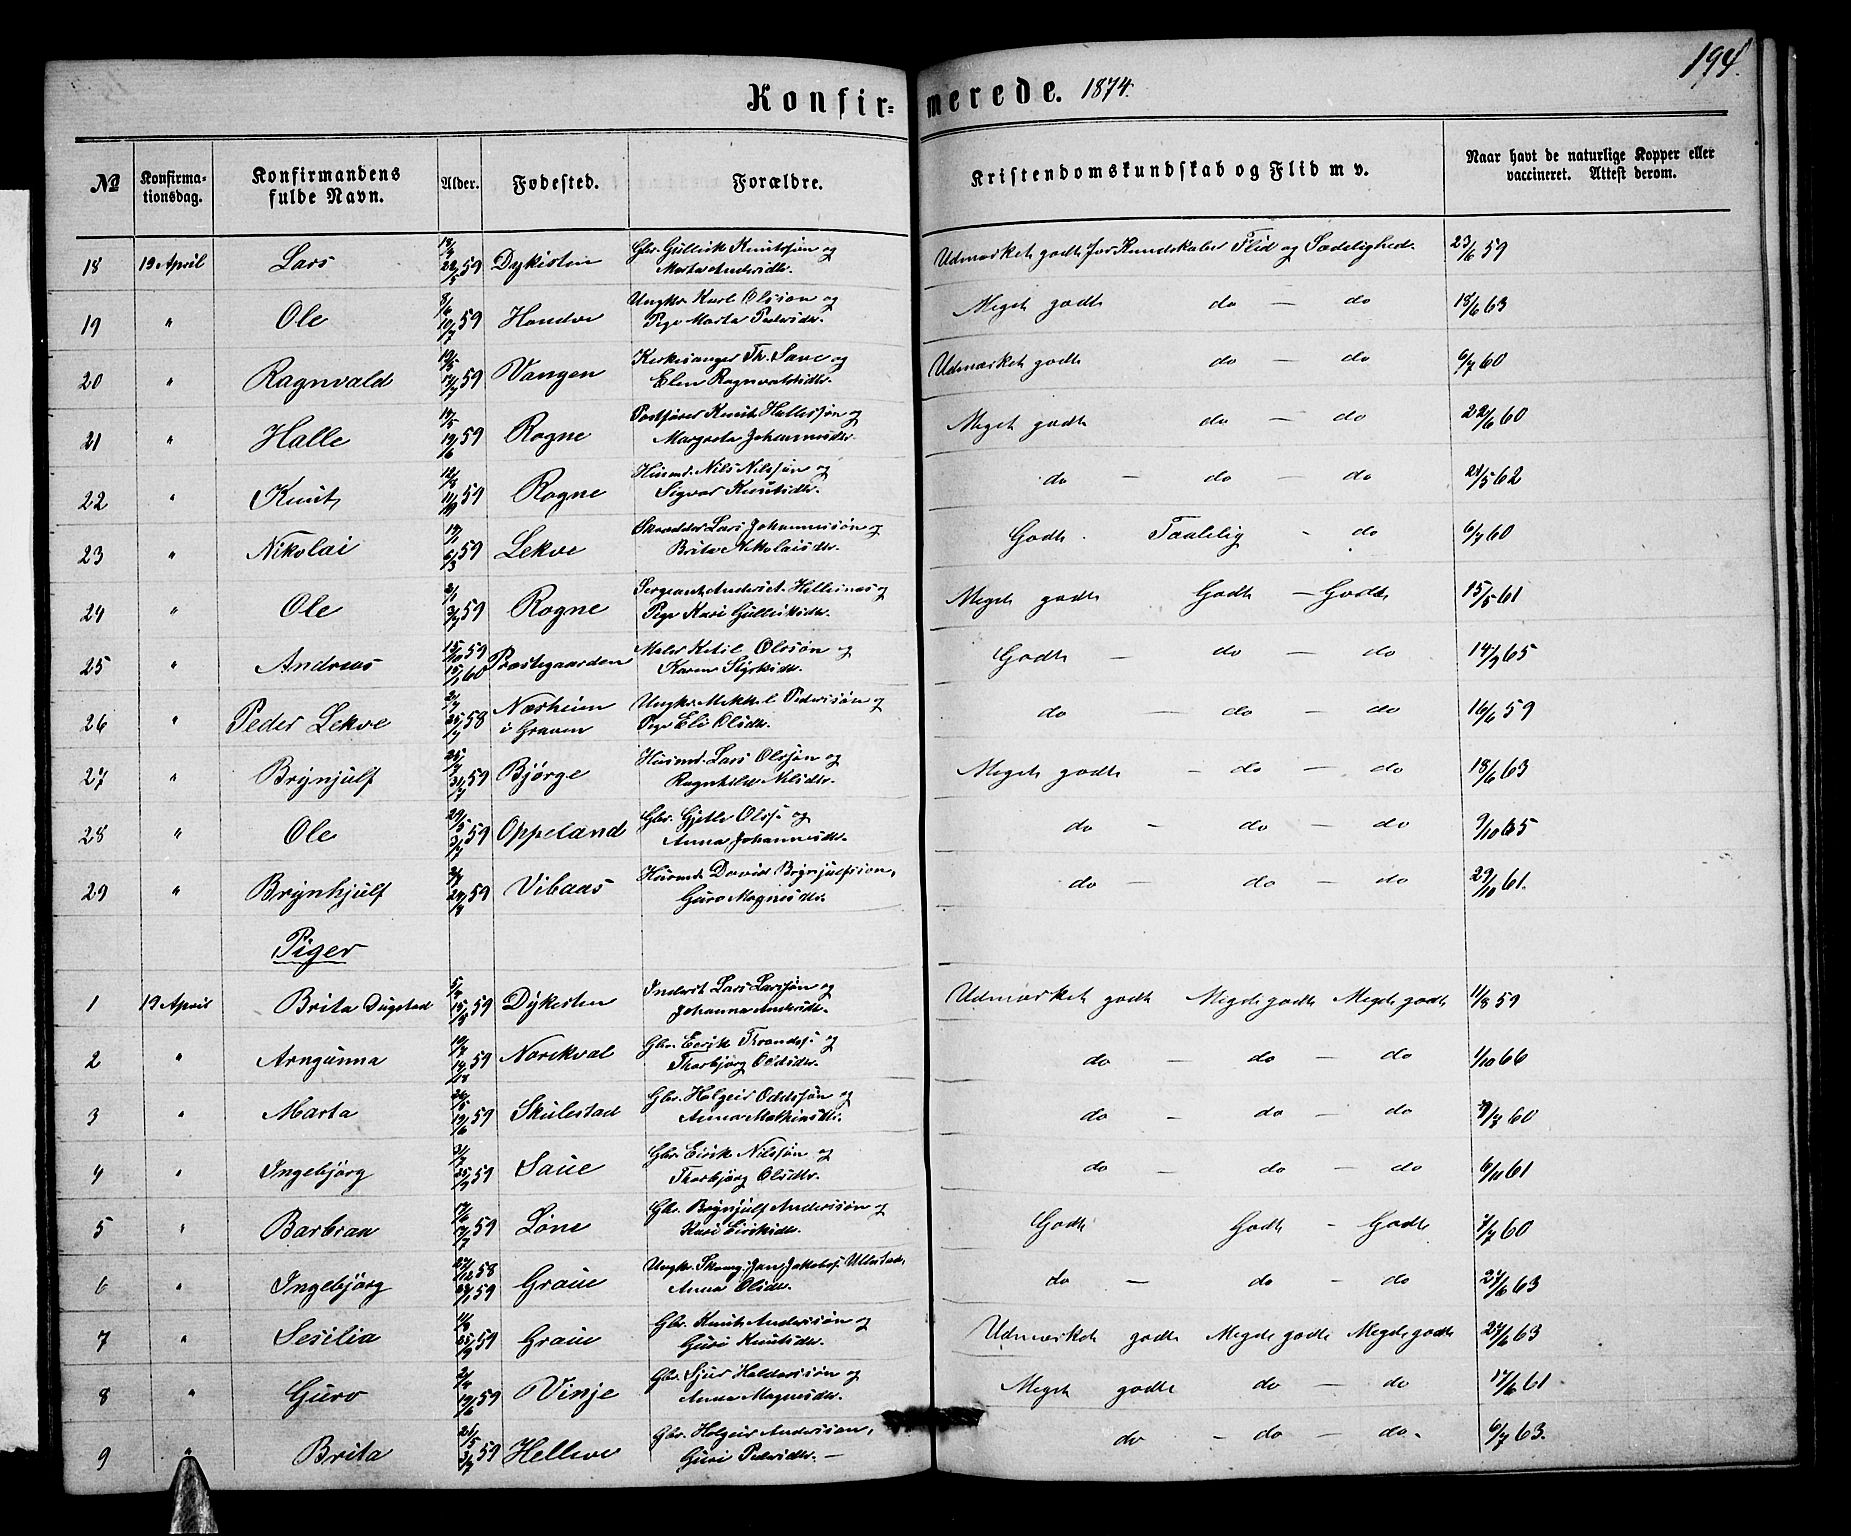 194.
Konfirmerede. 1874.
No Konfirmationsdag. Konfirmandens fulde Navn. Alder. Fødested. Forældre. Kristendomskundskab og Flid m v. Naar havt de naturlige Kopper eller vaccineret. Attest derom.
18 19 April Lars 22/5 59 Dykesten Gbr. Gullik Knutssøn og Marta Andersdtr. Udmærket godt for Kundskaber Flid og Sædelighed. 23/6 59
19 " Ole 10/7 59 Handve Ungkr Karl Olsson og Pige Marta Pedersdtr. Meget godt do — do 18/6 63
20 " Ragnvald 17/7 59 Vangen Kirkesanger Th. Saue og Elen Ragnvalsdtr. Udmærket godt do — do 6/7 60
21 " Halle 14/5 19/6 59 Rogne Postfører Knut Hallessøn og Margreta Johannesdtr. Meget godt do — do 22/6 60
22 " Knut 59 Rogne Husmd. Nils Nilssøn og Sigvor Knutsdtr. do — do — do 21/5 62
23 " Nikolai 6/3 59 Lekve Skrædder Lars Johannessøn og Brita Nikolaisdtr. Godt Taalelig - do 6/7 60
24 " Ole 59 Rogne Sergeant Anders Hellesnes og Pige Kari Gulliksdtr. Meget godt Godt — Godt 15/5 61
25 " Andreas 15/10 59 15/1 60 Præstegaarden Maler Ketil Olssøn og Karen Styrksdtr. Godt — do — do 14/9 65
26 " Peder Lekve 58 Næsheim i Graven Ungkr Mikkel Pederssøn og Pige Eli Olsdtr. do — do — do 16/6 59
27 " Brynjulf 31/7 59 Bjørge Husmd. Lars Olssøn og Ragnhild Nilsdtr. Meget godt - do — do 18/6 63
28 " Ole 29/5 3/7 59 Oppeland Gbr. Gjetle Olss. og Anna Johannesdtr. do — do — do 9/10 65
29 " Brynhjulf 59 Vibaas Husmd. David Brynjulfssøn, Guro Magnesdtr. do — do — do 29/10 61.
Piger
1 19 April Brita Dugstad 59 Dykesten Inderst Lars Larssøn og Johanna Andersdtr. Udmærket godt Megetgodt Megetgodt 11/8 59
2 " Arngunna 59 Norekval Gbr. Eirik Trondss. og Thorbjørg Oldsdtr. do — do — do 1/10 66
3 " Marta 19/6 59 Skulestad Gbr. Holgeir Oddssøn og Anna Mathiasdtr. do — do — do 60
4 " Ingebjørg 25/9 59 Saue Gbr. Eirik Nilssøn og Thorbjørg Olsdtr. do — do — do 6/11 61
5 " Barbraa 59 Løne Gbr. Brynjulf Anderssøn og Kari Eiriksdtr. Godt Godt - Godt 7/7 60
6 " Ingebjørg 27/12 58 27/1 59 Graue Ungkr. Skomg. Jan Jakobss. Ullestad, Anna Olsdtr. do — do — do 27/6 63
7 " Sesilia 25/9 59 Graue Gbr. Knut Anderssøn og Guri Knutsdtr. Udmærket godt Megetgodt Megetgodt 27/6 63
8 " Guro 19/6 59 Vinje Gbr. Sjur Haldorssøn og Anna Magnesdtr. Meget godt do — do 17/6 61
9 " Brita 21/5 3/7 59 Helleve Gbr. Holgeir Anderssøn, Guri Pedersdtr. — do - do — do. 6/7 63.